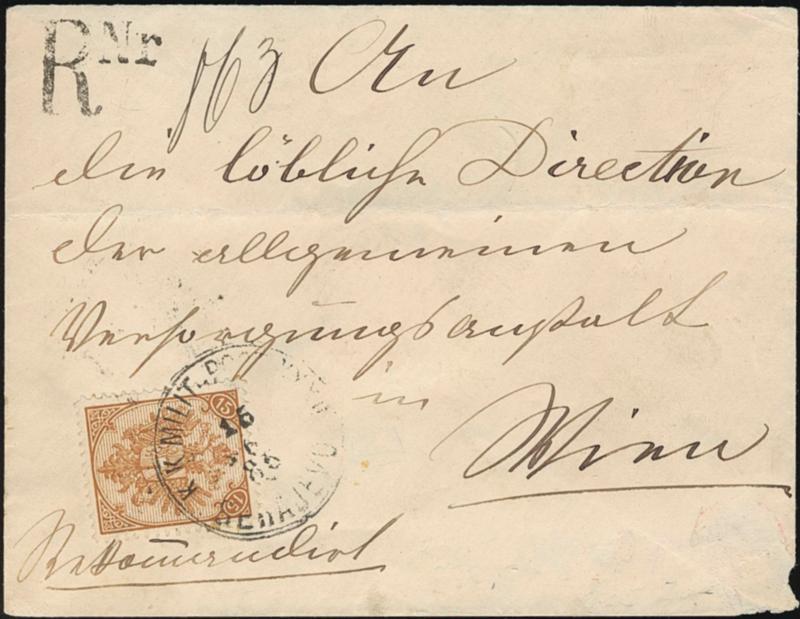 R Nr 163 An
die löbliche Direction
der allgemeinen
Versorgungsanstalt
in
Wien
15
15
K. K. MILIT. POST
SERAJEVO
15
86
Rekommandirt